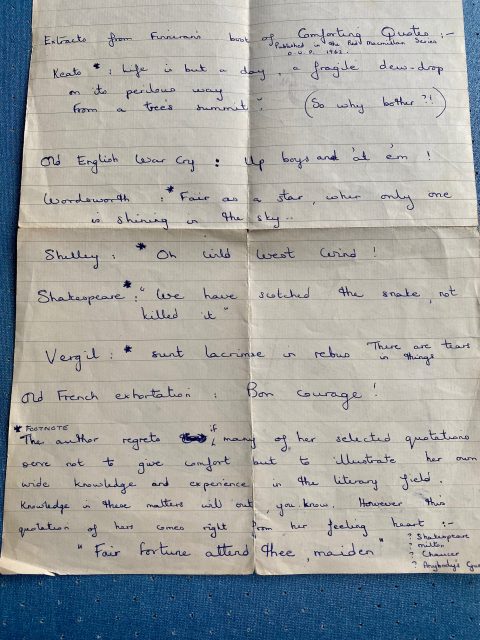 Extracts from Finneran's book of Comforting Quotes :-
Published in the Red Macmillan Series
O.U.P. 1962.
Keats * : Life is but a day, a fragile dew-drop
on its perilous way
From a tree's summit". (So why bother ?!)
Old English War Cry : Up boys and 'at 'em !
Wordsworth : * Fair as a star, when only one
is shining in the sky..
Shelley : * Oh wild West Wind !
Shakespeare * : "We have scotched the snake, not
killed it"
Vergil : * sunt lacrimae in rebus There are tears
in things
Old French exhortation : Bon courage !
* FOOTNOTE
The author regrets if many of her selected quotations
serve not to give comfort but to illustrate her own
wide knowledge and experience in the literary field.
Knowledge in these matters will out, you know. However this
quotation of hers comes right from her feeling heart :-
"Fair fortune attend thee, maiden"
? Shakespeare
? Milton
? Chaucer
? Anybody's